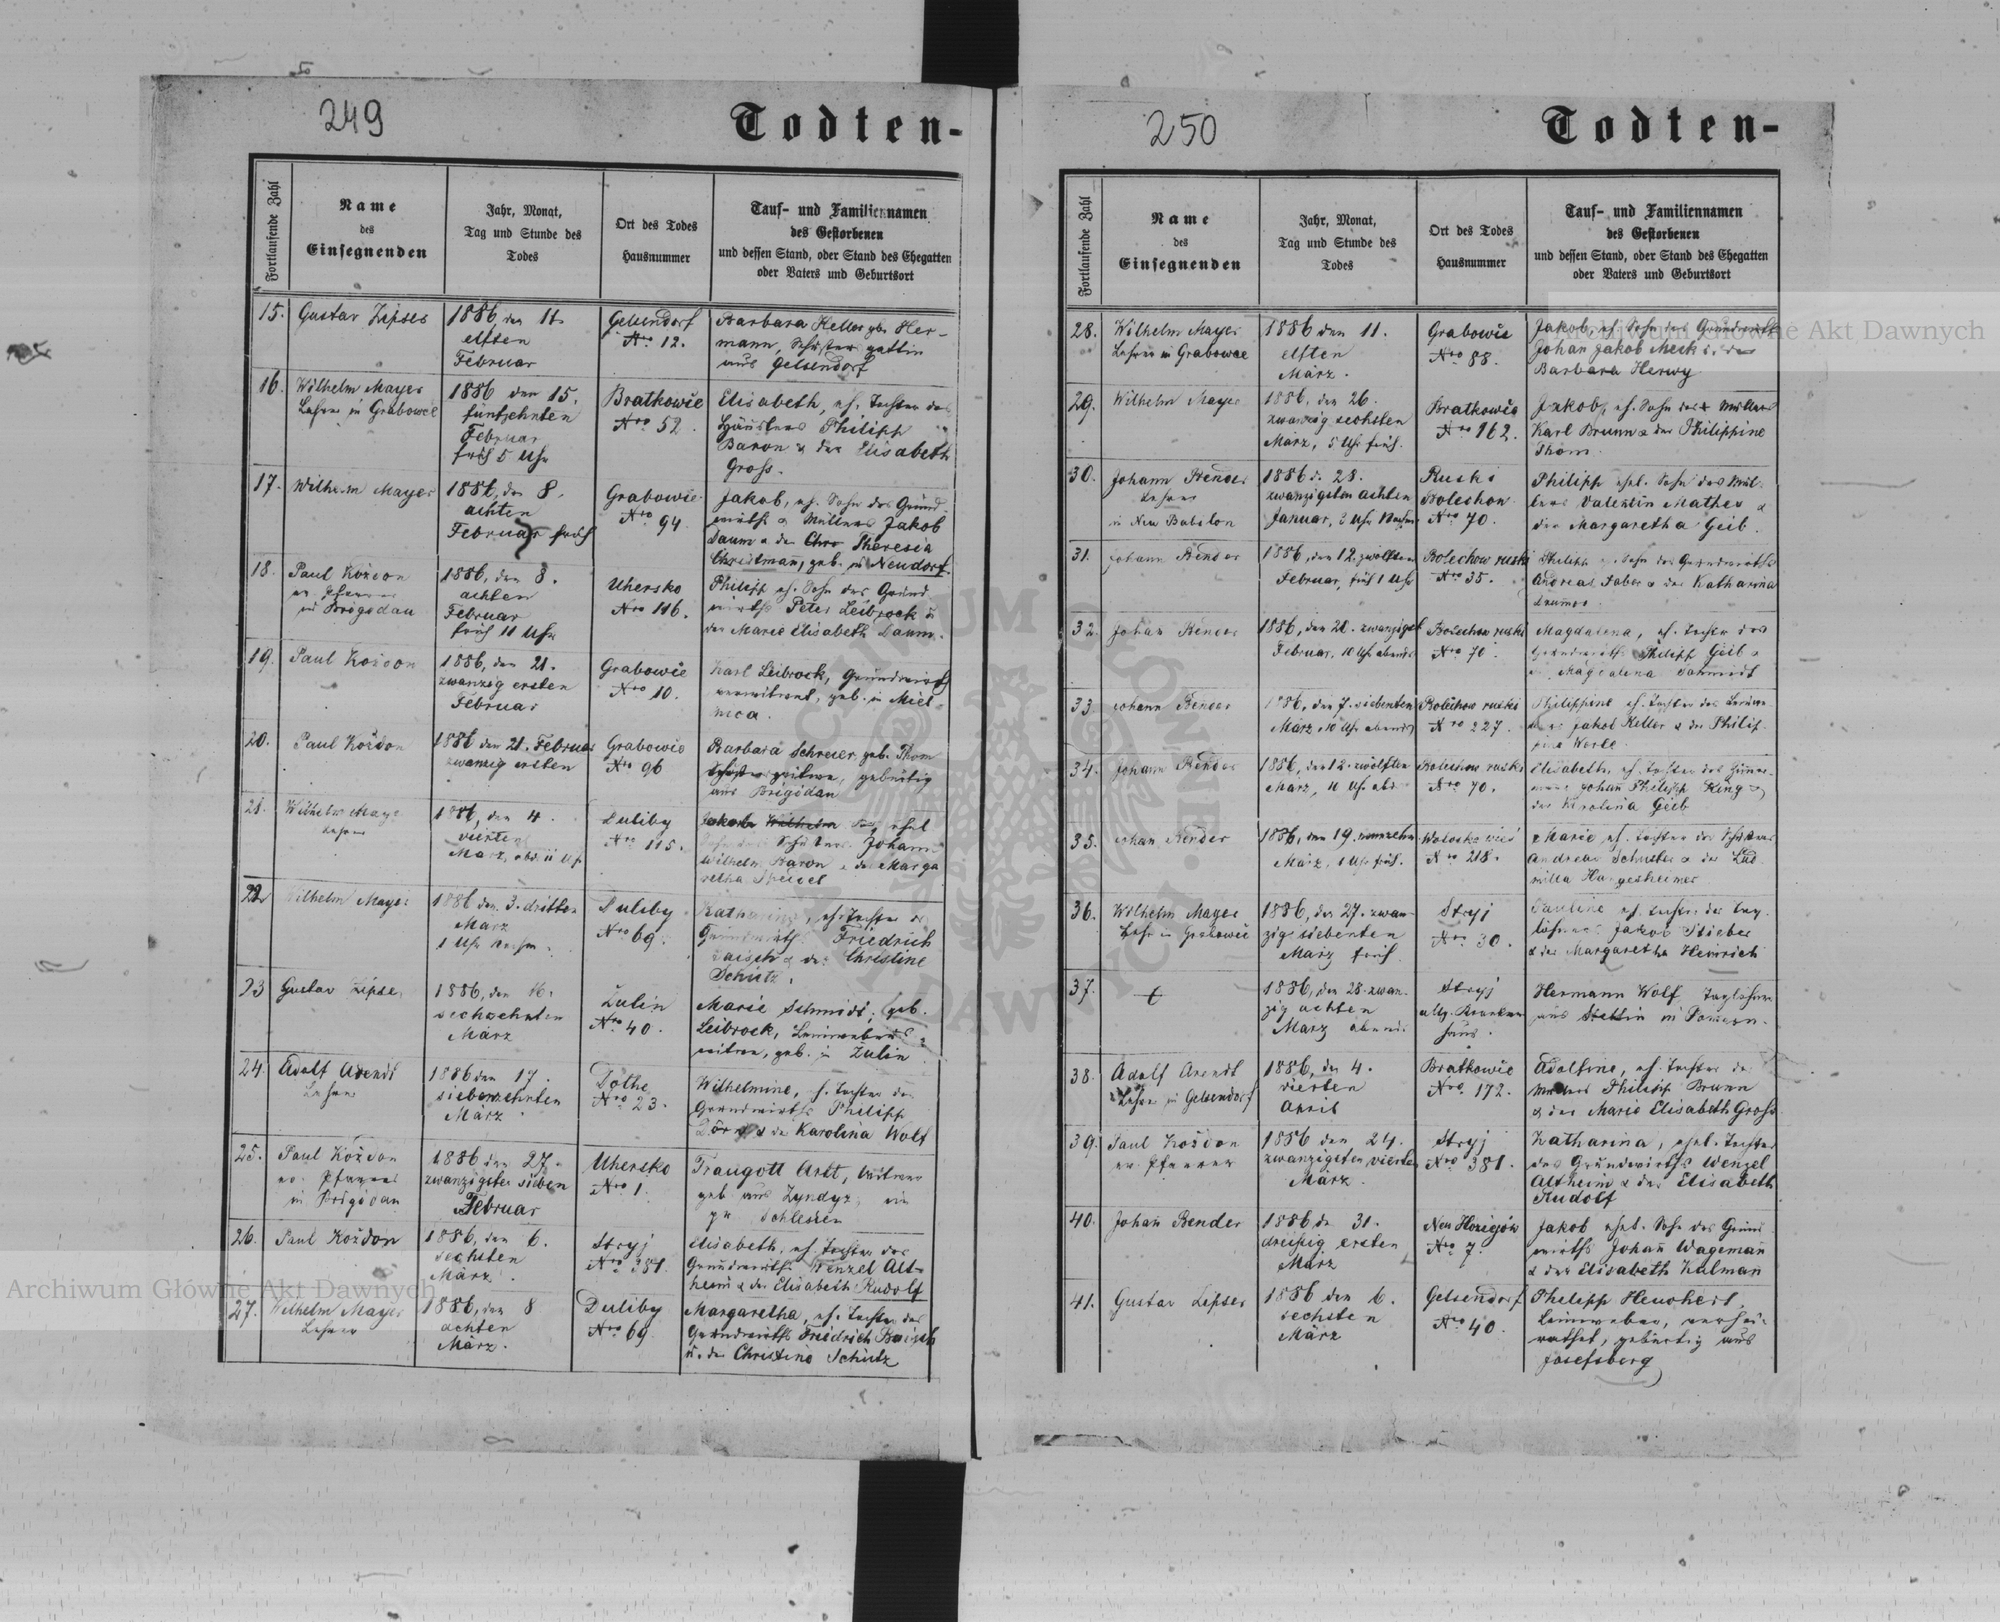 249
Todten-
Fortlaufende Zahl
Name
des
Einsegnenden
Jahr, Monat,
Tag und Stunde des
Todes
Ort des Todes
Hausnummer
Tauf- und Familiennamen
des Gestorbenen
und dessen Stand, oder Stand des Ehegatten
oder Vaters und Geburtsort
15. Gustav Zipser
1886, den 11.
elften
Februar
Gelsendorf
Nro 12.
Barbara Keller geb. Her-
mann, Schusters gattin
aus Gelsendorf
16. Wilhelm Mayer
Lehrer in Grabowce
1886 den 15.
fünfzehnten
Februar
früh 5 Uhr
Bratkowie
Nro 52.
Elisabeth, eh. Tochter des
Häuslers Philipp
Baron u. der Elisabeth
Gross.
17. Wilhelm Mayer
1886, den 8.
achten
Februar früh
Grabowie
Nro 94.
Jakob, eh. Sohn des Grund-
wirths u. Müllers Jakob
Daum u. der Chre Theresia
Christmann, geb. in Neudorf.
18. Paul Koždon
ev. Pfarrer
in Brigidau
1886, den 8.
achten
Februar
früh 11 Uhr
Uhersko
Nro 116.
Philipp eh. Sohn des Grund
wirths Peter Leibrock u
der Marie Elisabeth Daum.
19. Paul Koždon
1886, den 21.
zwanzig ersten
Februar
Grabowie
Nro 10.
Karl Leibrock, Grundwirth
verwitwet, geb. in
20. Paul Koždon
1886 den 21. Februar
zwanzig ersten
Grabowie
Nro 96
Barbara Schreier geb. Thom
Schusterswitwe, gebürtig
aus Brigidau
21. Wilhelm Mayer
Lehrer
1886, den 4.
vierten
März, abd. 11 Uhr
Duliby
Nro 115.
Jakob Wilhelm ehel
Sohn des Schusters Johann
Wilhelm Baron u. der Marga
retha
22. Wilhelm Mayer
1886 den 3. dritten
März
1 Uhr Nachm.
Duliby
Nro 69.
Katharina, eh. Tochter des
Grundwirths Friedrich
Baisch u. der Christine
Schütz.
23 Gustav Zipser
1886, den 16.
sechzehnten
März
Zulin
Nro 40.
Marie Schmidt, geb.
Leibrock, Leinwebers-
witwe, geb. in Zulin
24. Adolf Arendt
Lehrer
1886 den 17.
siebenzehnten
März
Nro 23.
Wilhelmine, eh. Tochter des
Grundwirths Philipp
u. der Karolina Wolf
25. Paul Koždon
ev. Pfarrer
in Brigidau
1886 den 27.
zwanzigsten sieben
Februar
Uhersko
Nro 1.
Traugott Arlt, Witwer
geb. aus
Schlesien
26. Paul Koždon
1886, den 6.
sechsten
März.
Stryj
Nro 381.
Elisabeth, eh. Tochter des
Grundwirths Wenzel Alt-
heim u. der Elisabeth Rudolf
27. Wilhelm Mayer
Lehrer
1886, den 8
achten
März.
Duliby
Nro 69.
Margaretha, eh. Tochter des
Grundwirths Friedrich Baisch
u. der Christine Schütz
250
Todten-
Fortlaufende Zahl
Name
des
Einsegnenden
Jahr, Monat,
Tag und Stunde des
Todes
Ort des Todes
Hausnummer
Tauf- und Familiennamen
des Gestorbenen
und dessen Stand, oder Stand des Ehegatten
oder Vaters und Geburtsort
28. Wilhelm Mayer
Lehrer in Grabowce
1886 den 11.
elften
März.
Grabowie
Nro 88.
Jakob, eh. Sohn des Grundwirths
Johan Jakob
Barbara Herwy
29. Wilhelm Mayer
1886, den 26.
zwanzig sechsten
März, 5 Uhr früh.
Bratkowie
Nro 162.
Jakob, eh. Sohn des Müllers
Karl Brunn u. der Philippine
Thom.
30. Johann Bender
Lehrer
in Neu Babilon
1886 d. 28.
zwanzigsten achten
Januar, 3 Uhr Nachm
Ruski
Bolechow
Nro 70.
Philipp ehel. Sohn des Mül-
lers Valentin Mather u
der Margaretha Geib.
31. Johann Bender
1886, den 12. zwölften
Februar, früh 1 Uhr
Bolechow ruski
Nro 35.
Philipp eh. Sohn des Grundwirths
Andreas Faber u. der Katharina
32. Johan Bender
1886, den 20. zwanzigst
Februar, 10 Uhr abends
Bolechow ruski
Nro 70.
Magdalena, eh. Tochter des
Grundwirths Philipp Geib u
der Magdalena Schmidt
33. Johann Bender
1886, den 7. siebenten
März, 10 Uhr abends
Bolechow ruski
Nro 227.
Philippine eh. Tochter des
Jakob Keller u. der Philip-
pine Werle.
34. Johann Bender
1886, den 12. zwölften
März, 10 Uhr abds
Bolechow ruski
Nro 70.
Elisabeth, eh. Tochter des Zimmer-
manns Johan Philipp King u
der Karolina Geib
35. Johan Bender
1886, den 19. neunzehn
März, 1 Uhr früh.
Woloska wieś
Nro 218.
Marie, eh. Tochter des Schusters
Andreas Schuster u. der Lud-
milla Hargesheimer
36. Wilhelm Mayer
Lehr. in Grabowie
1886, den 27. zwan-
zig siebenten
März früh.
Stryj
Nro 30.
Pauline eh. Tochter des Tag-
löhners Jakob Stieber
u. der Margaretha Heinrich
37.
1886, den 28. zwan-
zig achten
März abends
Stryj
allg. Kranken
haus.
Hermann Wolf, Taglöhner
aus Stettin in Pomern.
38. Adolf Arendt
Lehrer in Gelsendorf
1886, den 4.
vierten
April
Bratkowie
Nro 172.
Adolfine, eh. Tochter des
Müllers Philipp Brunn
u. der Marie Elisabeth Gross
39. Paul Koždon
ev. Pfarrer
1886 den 24.
zwanzigsten vierten
März.
Stryj
Nro 381.
Katharina, ehel. Tochter
des Grundwirths Wenzel
Altheim u. der Elisabeth
Rudolf
40. Johan Bender
1886 den 31.
dreißig ersten
März
Neu
Nro 7.
Jakob ehel. Sohn des Grund
wirths Johan Wageman
u. der Elisabeth Kalman
41. Gustav Zipser
1886 den 6.
sechsten
März
Gelsendorf
Nro 40.
Philipp Heuchert,
Leinweber, verhei-
rathet, gebürtig aus
Josefsberg
Archiwum Główne Akt Dawnych
Archiwum Główne Akt Dawnych
ARCHIWUM GŁÓWNE AKT DAWNYCH